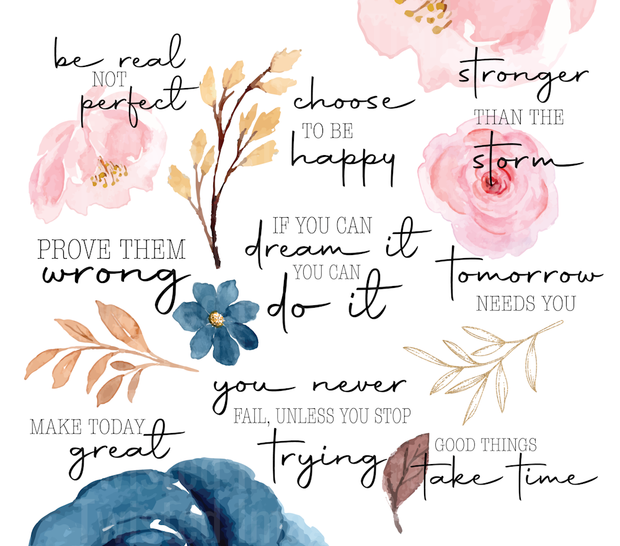 be real
NOT
perfect
choose
TO BE
happy
stronger
THAN THE
storm
PROVE THEM
wrong
IF YOU CAN
dream it
YOU CAN
do it
tomorrow
NEEDS YOU
you never
FAIL, UNLESS YOU STOP
trying
MAKE TODAY
great
GOOD THINGS
take time